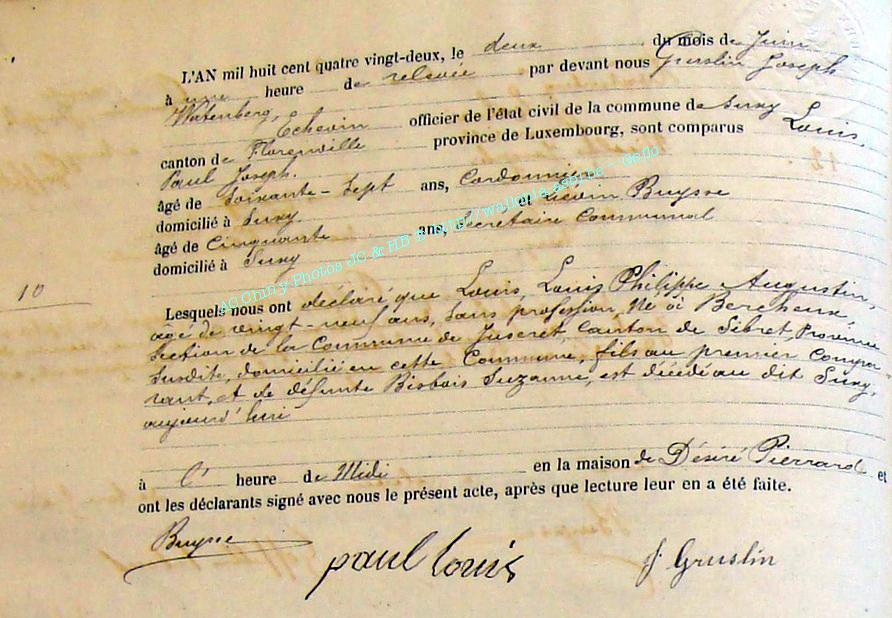 L'AN mil huit cent quatre vingt-deux, le deux du mois de Juin
à une heure de relevée par devant nous Gruslin Joseph
Watenberg, Echevin officier de l'état civil de la commune de Suxy
canton de Florenville province de Luxembourg, sont comparus Louis
Paul Joseph.
âgé de Soixante-Sept ans, Cordonnier
domicilié à Suxy et Liévin Buysse
âgé de Cinquante ans, Secrétaire Communal
domicilié à Suxy
AC Chiny Photos JC & HB
10
Lesquels nous ont déclaré que Louis, Louis Philippe Augustin,
âgé de vingt-neuf ans, sans profession, Né à Bercheux,
section de la Commune de Juseret, Canton de Sibret, Province
susdite, domicilié en cette Commune, fils au premier compa
rant, et de défunte Bisbois Suzanne, est décédé au dit Suxy,
aujourd'hui
à l' heure de Midi en la maison de Désiré Pierrard et
ont les déclarants signé avec nous le présent acte, après que lecture leur en a été faite.
Buysse
paul Louis
J Gruslin